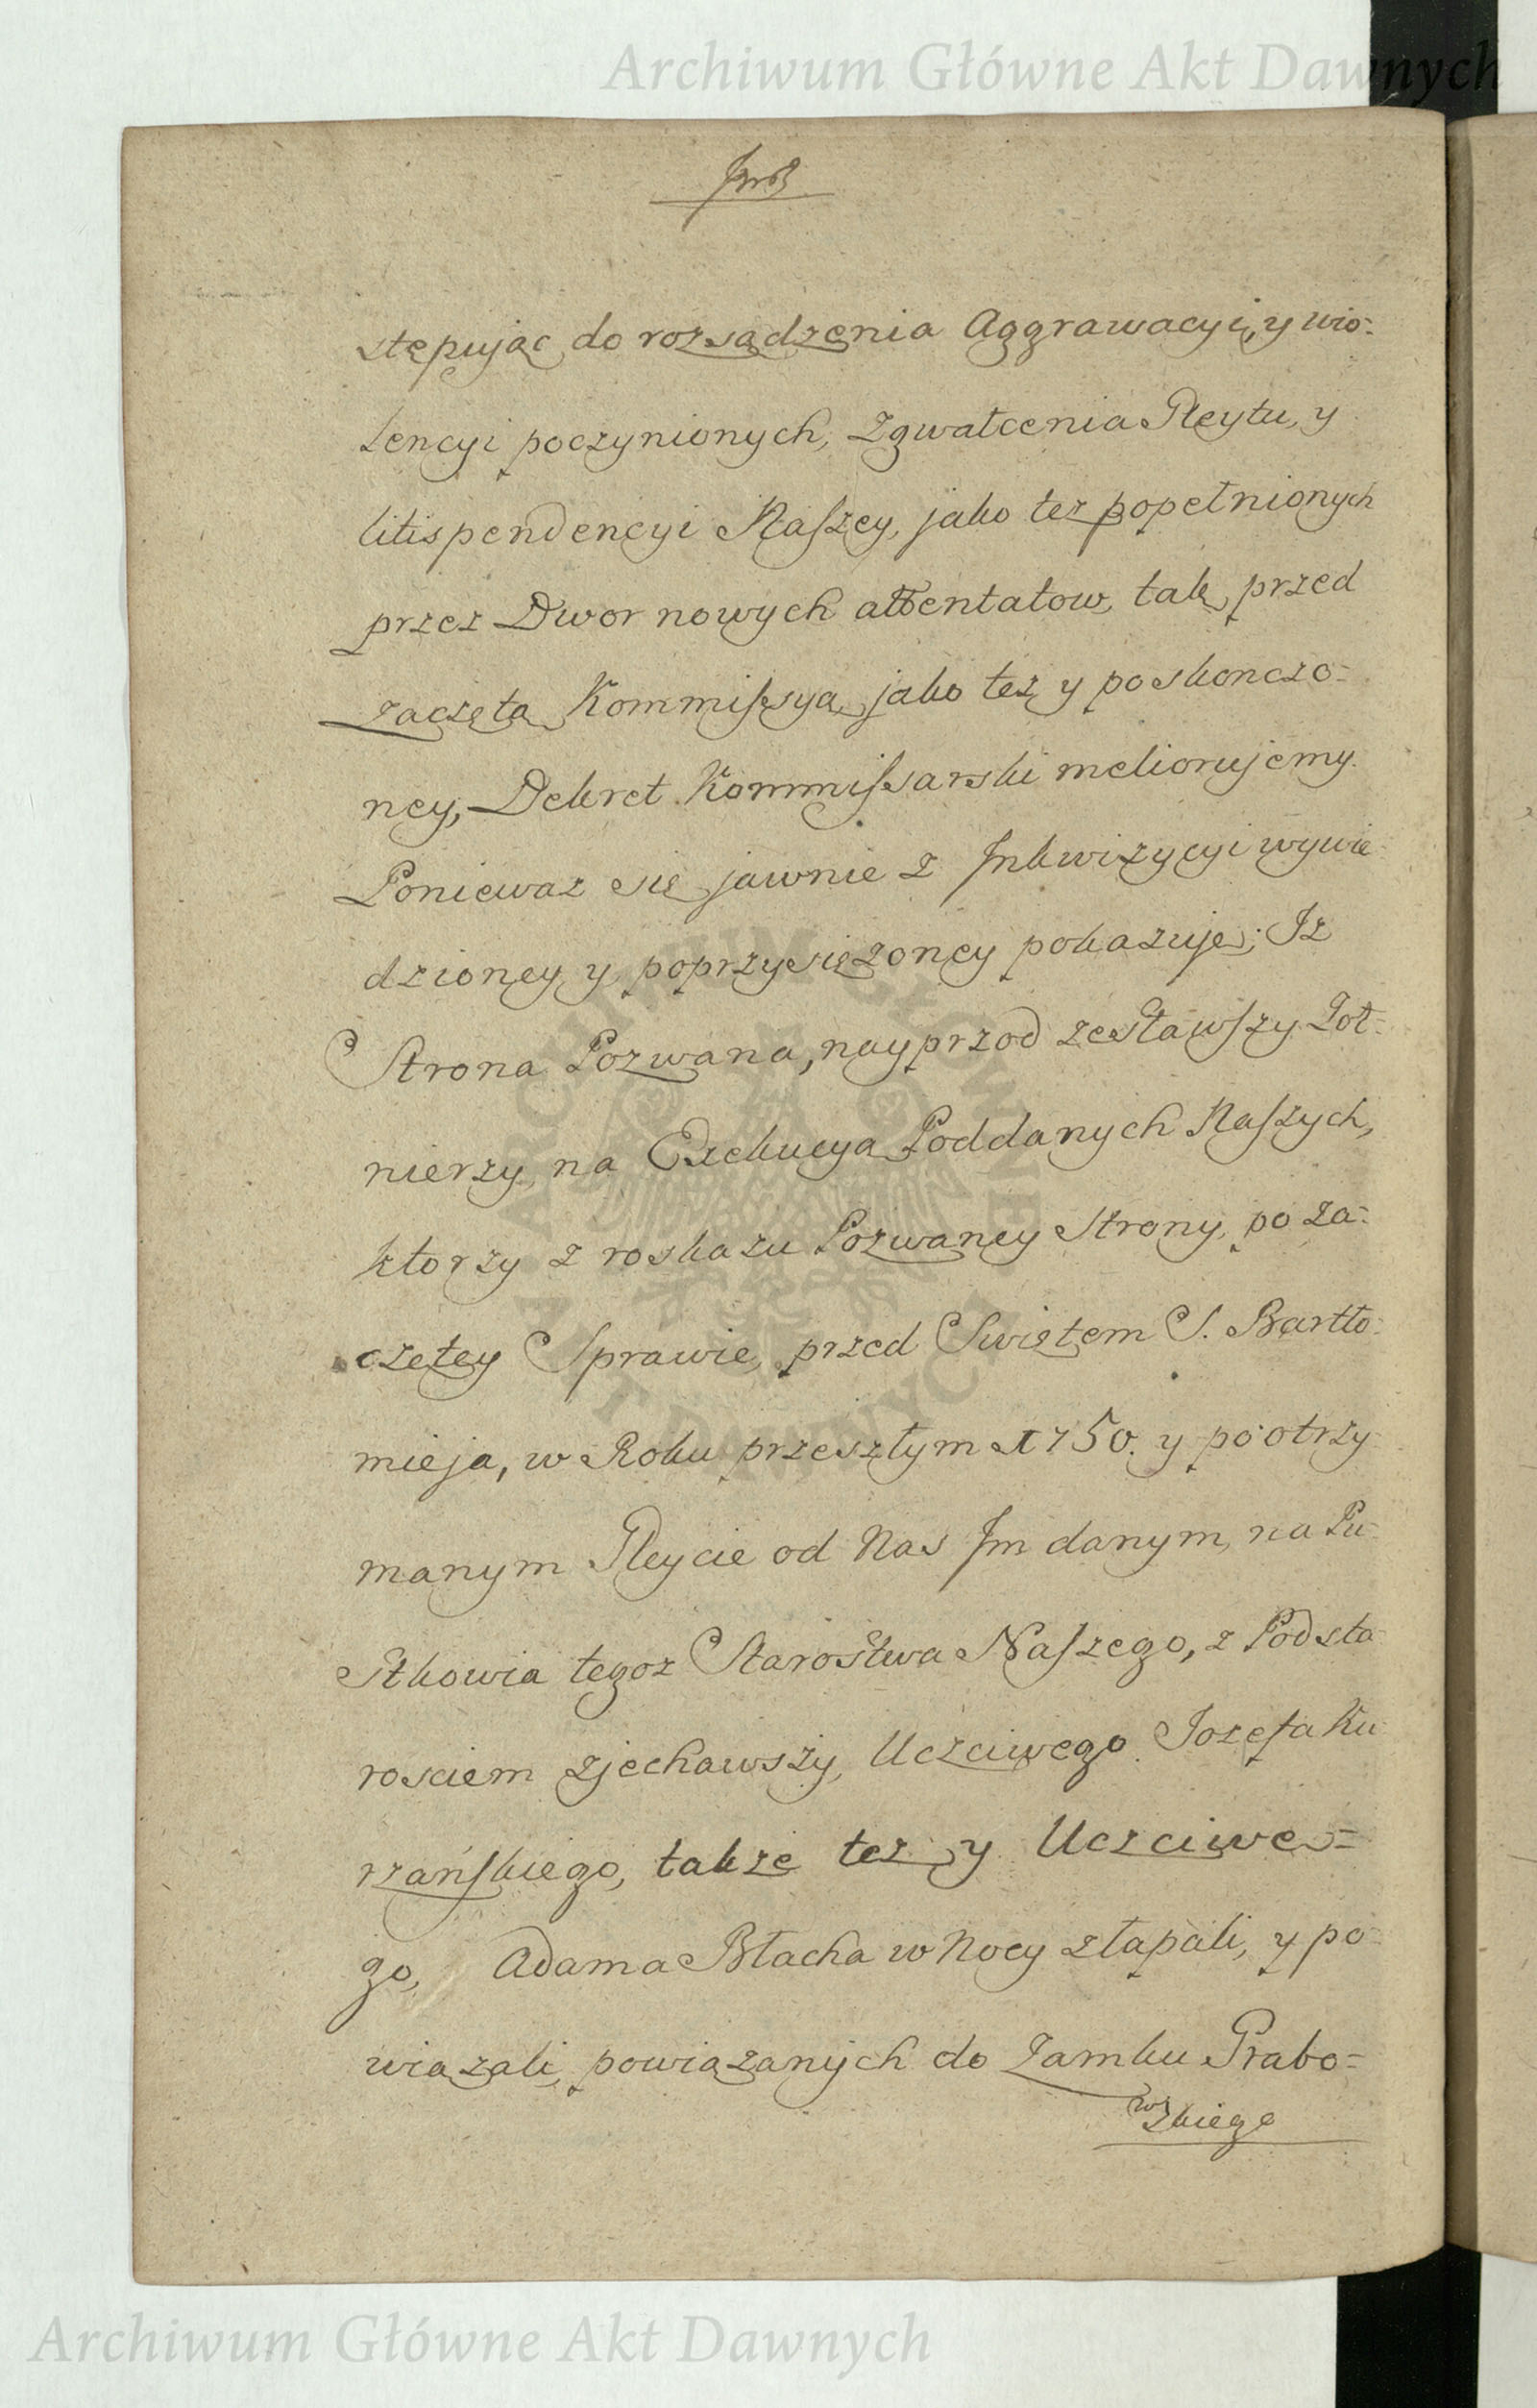 Archiwum Główne Akt Dawnych
stępując do rozsądzenia Aggrawacyi, y wio=
lencyi poczynionych, zgwałcenia Gleytu, y
litispendencyi Naszey, jako tez popełnionych
przez Dwor nowych attentatow, tak przed
zaczętą Kommissyą, jako tez y poskonczo=
ney, Dekret Kommissarski meliorujemy.
Poniewaz się jawnie z Inkwizycyi wywie
dzioney y poprzysięzoney pokazuje; Iz
Strona Pozwana, nayprzod zesławszy Zoł=
nierzy na Exekucyą Poddanych Naszych,
ktorzy z roskazu Pozwaney Strony, po za=
czętey Sprawie, przed Swiętem S. Bartło=
mieja, w Roku przeszłym 1750. y po otrzy
manym Gleycie od Nas Im danym, na Pu=
stkowia tegoz Starostwa Naszego, z Podsta
rosciem zjechawszy, Uczciwego Jozefa Ku
rzańskiego, takze tez y Uczciwe=
go, Adama Błacha w Nocy złapali, y po=
wiązali, powiązanych do Zamku Grabo=
wzkiego
ARCHIWUM GŁÓWNE AKT DAWNYCH
Archiwum Główne Akt Dawnych